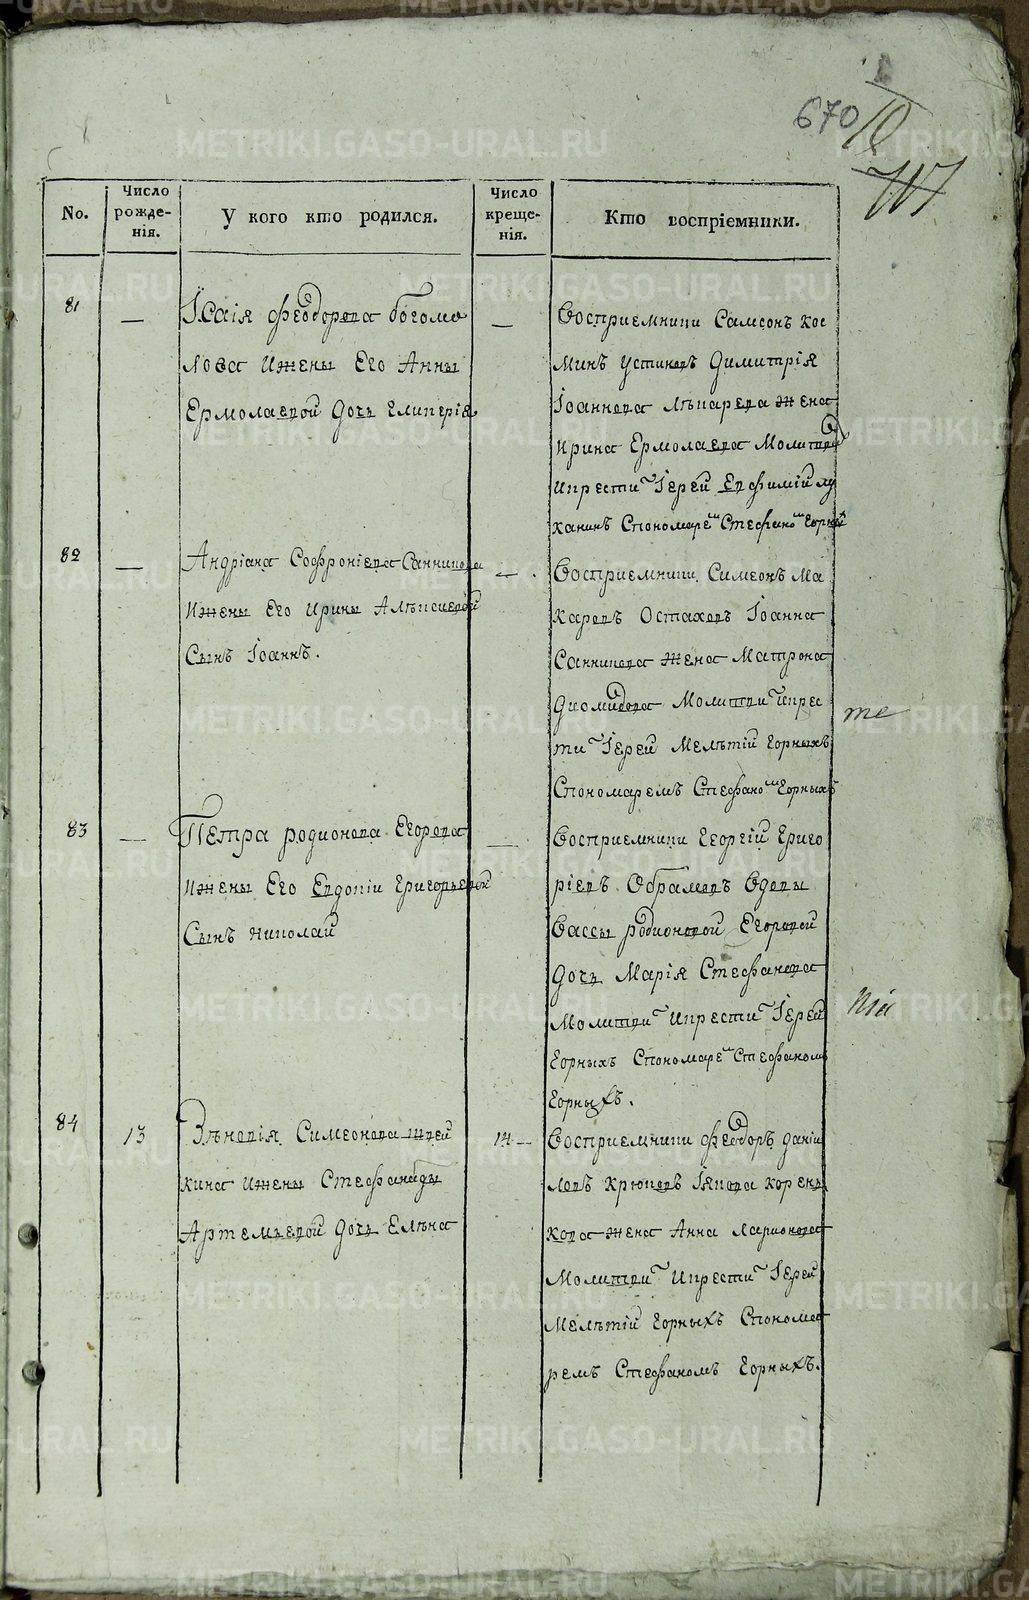 670
No.
Число рожде-нія.
У кого кто родился.
Число креще-нія.
Кто воспріемники.
81
—
Ісаія Феодорова богомо
лова и жены Его Анны
Ермолаевой Дочь Гликерія
—
Восприемники Самсонъ Кос
минъ Устиновъ Димитрія
Іоаннова Лѣкарева жена
Ирина Ермолаева Молитви
и крести Іерей Евфимій Лу
канинъ Спономаре Стефано Горны
82
—
Андріана Софроніева Санникова
и жены Его Ирины Алѣксиевой
Сынъ Іоаннъ.
—
Восприемники Симеонъ Ма
каровъ Остаховъ Іоанна
Санникова жена Матрона
Диомидова Молитви и крес
ти Іерей Мелѣтій Горныхъ
Спономаремъ Стефано Горныхъ
83
—
Петра родионова Егорова
и жены Его Евдокіи Григорьевой
Сынъ Николай
—
Восприемники Георгій Григо
ріевъ Абрамовъ Вдовы
Вассы родионовой Егоровой
дочь Марія Стефанова
Молитви и крести Іерей
Горныхъ Спономаре Стефаномъ
Горныхъ.
84
13
Зѣновія Симеонова
кина и жены Стефаниды
Артемьевой дочь Елѣна
14 —
Восприемники Феодоръ Даніи
ловъ Крюковъ Іякова корень
кова жена Анна Ларионова
Молитви и крести Іерей
Мелѣтій Горныхъ Спонома
ремъ Стефаномъ Горныхъ.
METRIKI.GASO-URAL.RU